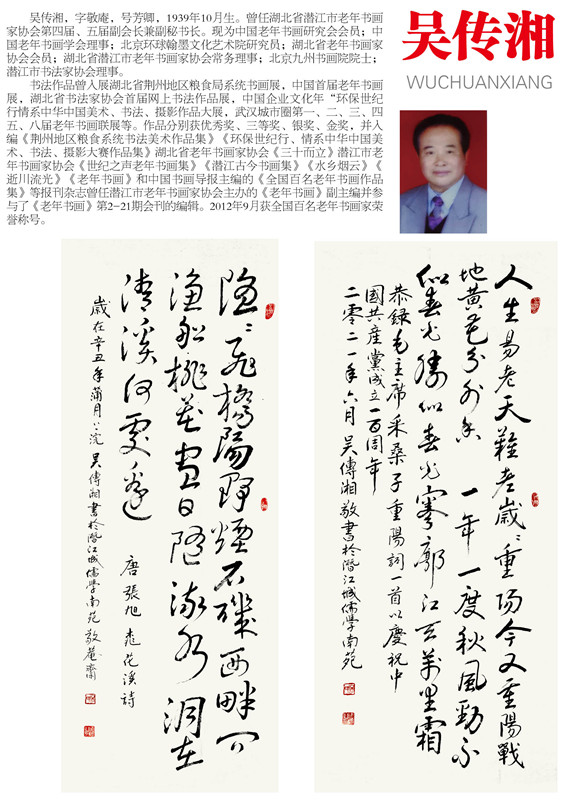 吴传湘，字敬庵，号芳卿，1939年10月生。曾任湖北省潜江市老年书画
家协会第四届、五届副会长兼副秘书长。现为中国老年书画研究会会员；中
国老年书画学会理事；北京环球翰墨文化艺术院研究员；湖北省老年书画家
协会会员；湖北省潜江市老年书画家协会常务理事；北京九州书画院院士；
潜江市书法家协会理事。
书法作品曾入展湖北省荆州地区粮食局系统书画展，中国首届老年书画
展，湖北省书法家协会首届网上书法作品展，中国企业文化年“环保世纪
行情系中华中国美术、书法、摄影作品大展，武汉城市圈第一、二、三、四
五、八届老年书画联展等。作品分别获优秀奖、三等奖、银奖、金奖，并入
编《荆州地区粮食系统书法美术作品集》《环保世纪行、情系中华中国美
术、书法、摄影大赛作品集》湖北省老年书画家协会《三十而立》潜江市老
年书画家协会《世纪之声老年书画集》《潜江古今书画集》《水乡烟云》《
逝川流光》《老年书画》和中国书画导报主编的《全国百名老年书画作品
集》等报刊杂志曾任潜江市老年书画家协会主办的《老年书画》副主编并参
与了《老年书画》第2-21期会刊的编辑。2012年9月获全国百名老年书画家荣
誉称号。
吴传湘
WUCHUANXIANG
人生易老天難老歲〻重陽今又重陽戰
地黃花分外香一年一度秋風勁不
似春光勝似春光寥廓江天萬里霜
恭録毛主席采桑子重陽詞一首以慶祝中
國共産黨成立一百周年
二零二一年六月吴傳湘敬書於潛江城儒學南苑
隐〻飛橋隔野煙石磯西畔问
渔船桃花盡日随流水洞在
清溪何處邊
唐張旭桃花溪詩
歲在辛丑年蒲月 吴傳湘書於潛江城儒學南苑敬庵齋